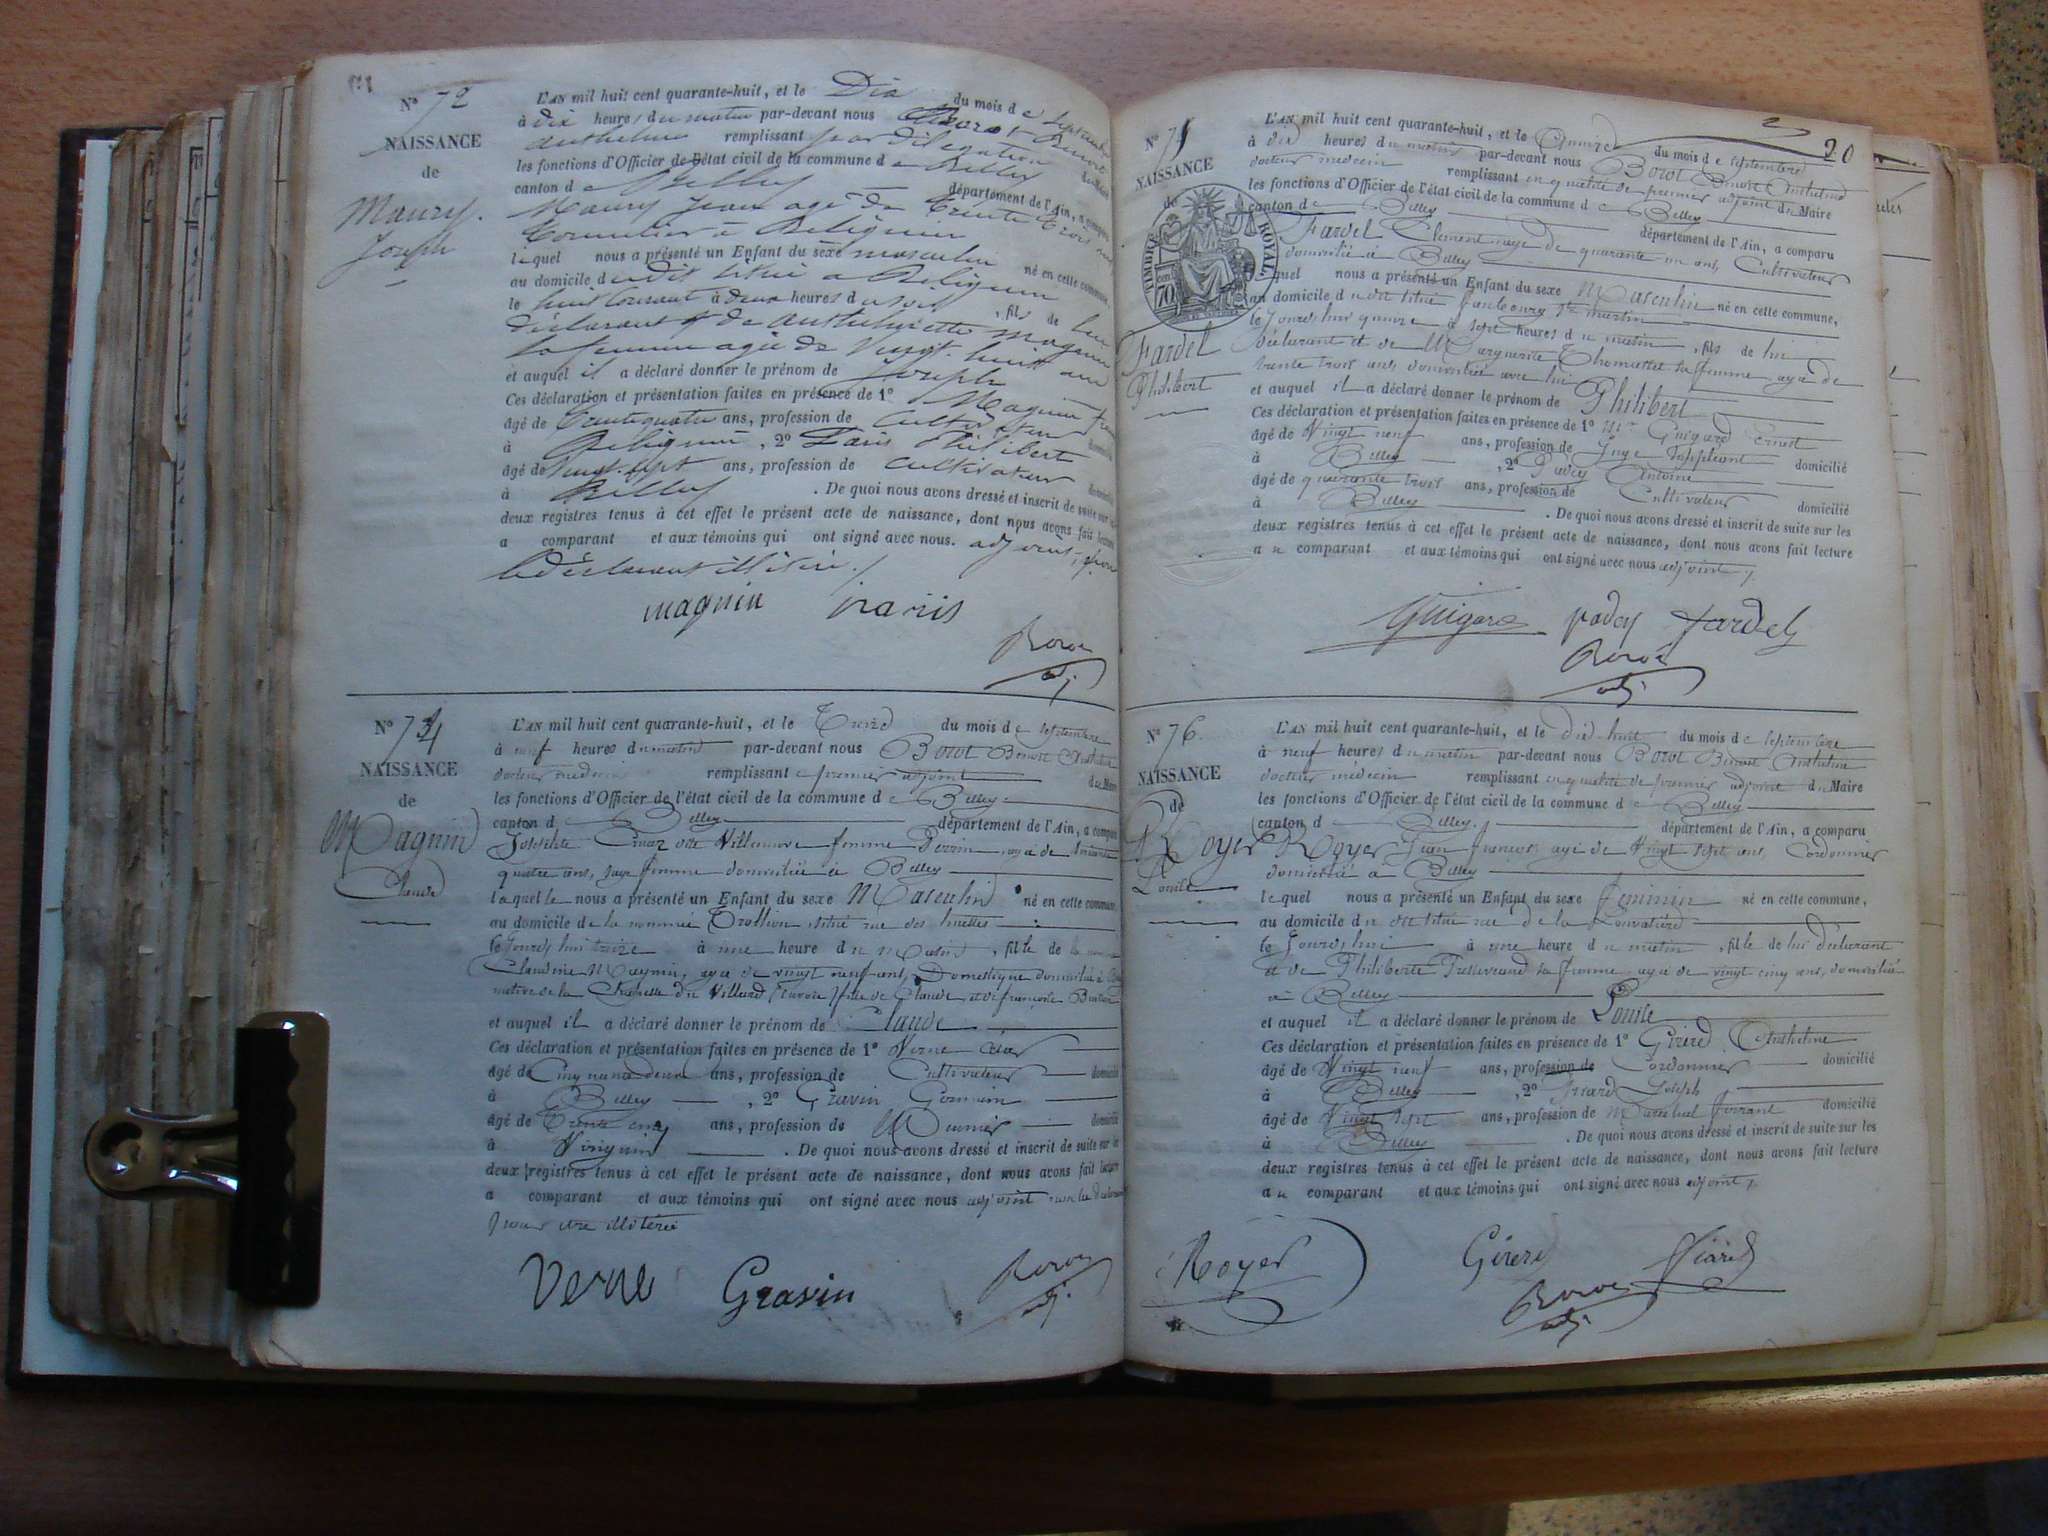 N° 72
NAISSANCE
de
Maury
Joseph
L'AN mil huit cent quarante-huit, et le Dix du mois de septembre
à dix heures du matin par-devant nous Borot Benoit
Anthelme remplissant par délégation
les fonctions d'Officier de l'état civil de la commune de Belley
canton de Belley département de l'Ain, a comparu
Maury Jean agé de Trente trois ans
à
lequel nous a présenté un Enfant du sexe masculin né en cette commune,
au domicile du dit situé a
le huit courant à deux heures du soir, fils de lui
déclarant & de magnin
sa femme agée de Vingt-huit ans
et auquel il a déclaré donner le prénom de Joseph
Ces déclaration et présentation faites en présence de 1° Magnin
âgé de Trente quatre ans, profession de Cultivateur
à , 2° Philibert
âgé de Vingt-sept ans, profession de cultivateur
à Belley . De quoi nous avons dressé et inscrit de suite sur les
deux registres tenus à cet effet le présent acte de naissance, dont nous avons fait lecture
a comparant et aux témoins qui ont signé avec nous. adjoint,
le déclarant illitéré
magnin
Borot
adj
N° 74
NAISSANCE
de
Magnin
Claude
L'AN mil huit cent quarante-huit, et le Treize du mois de septembre
à neuf heures du matin par-devant nous Borot Benoit Anthelme
docteur medecin remplissant premier adjoint du Maire
les fonctions d'Officier de l'état civil de la commune de Belley
canton de Belley département de l'Ain, a comparu
Josephte Villeneuve femme Perrin agée de
quatre ans, sage femme domiciliée à Belley
laquelle nous a présenté un Enfant du sexe Masculin né en cette commune,
au domicile de la nommée situé rue des
le jourd'hui treize à une heure du matin, fils de la
Claudine Magnin, agée de vingt neuf ans, Domestique domiciliée à
native de la Chapelle du Villard fille de Claude et de françoise
et auquel il a déclaré donner le prénom de Claude
Ces déclaration et présentation faites en présence de 1° Verne
âgé de Cinquante deux ans, profession de Cultivateur domicilié
à Belley , 2° Gravin Germain
âgé de Trente cinq ans, profession de Meunier domicilié
à Virignin . De quoi nous avons dressé et inscrit de suite sur les
deux registres tenus à cet effet le présent acte de naissance, dont nous avons fait lecture
a comparant et aux témoins qui ont signé avec nous adjoint
pour etre illitérée
Verne Gravin Borot
adj
20
N° 75
NAISSANCE
de
TIMBRE ROYAL
70
Fardel
Philibert
L'AN mil huit cent quarante-huit, et le Quinze du mois de septembre
à dix heures du matin par-devant nous Borot Benoit Anthelme
docteur medecin remplissant en qualité de premier adjoint du Maire
les fonctions d'Officier de l'état civil de la commune de Belley
canton de Belley département de l'Ain, a comparu
Fardel Clement agé de quarante un ans, Cultivateur
domicilié à Belley
lequel nous a présenté un Enfant du sexe Masculin né en cette commune,
au domicile du dit situé faubourg St martin
le jourd'hui quinze à sept heures du matin, fils de lui
déclarant et de Marguerite Thomasset sa femme agée de
trente trois ans domiciliée avec lui
et auquel il a déclaré donner le prénom de Philibert
Ces déclaration et présentation faites en présence de 1° Mr Guigard Ernest
âgé de Vingt neuf ans, profession de Juge suppléant domicilié
à Belley , 2° Padey Antoine
âgé de quarante trois ans, profession de Cultivateur domicilié
à Belley . De quoi nous avons dressé et inscrit de suite sur les
deux registres tenus à cet effet le présent acte de naissance, dont nous avons fait lecture
au comparant et aux témoins qui ont signé avec nous adjoint
Guigard padey fardel
Borot
adj
N° 76
NAISSANCE
de
Royer
Louise
L'AN mil huit cent quarante-huit, et le dix huit du mois de septembre
à neuf heures du matin par-devant nous Borot Benoit Anthelme
docteur médecin remplissant en qualité de premier adjoint du Maire
les fonctions d'Officier de l'état civil de la commune de Belley
canton de Belley département de l'Ain, a comparu
Royer Jean françois agé de Vingt sept ans, Cordonnier
domicilié à Belley
lequel nous a présenté un Enfant du sexe feminin né en cette commune,
au domicile du dit situé rue de la
le jourd'hui à une heure du matin, fille de lui déclarant
et de Philiberte sa femme agée de vingt cinq ans, domiciliée
à Belley
et auquel il a déclaré donner le prénom de Louise
Ces déclaration et présentation faites en présence de 1° Gérerd Anthelme
âgé de Vingt neuf ans, profession de Cordonnier domicilié
à Belley , 2° Joseph
âgé de Vingt sept ans, profession de Maréchal ferrant domicilié
à Belley . De quoi nous avons dressé et inscrit de suite sur les
deux registres tenus à cet effet le présent acte de naissance, dont nous avons fait lecture
au comparant et aux témoins qui ont signé avec nous adjoint
Royer Gérerd
Borot
adj